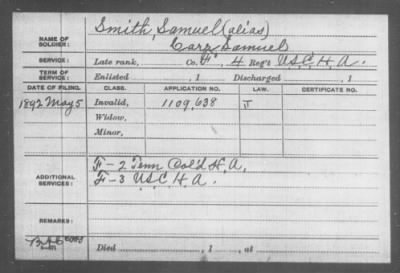 NAME OF SOLDIER: Smith, Samuel (alias)
Carr, Samuel
SERVICE: Late rank, Co. F, 4 Reg't U.S.C.H.A.
TERM OF SERVICE: Enlisted , 1 Discharged , 1
DATE OF FILING. CLASS. APPLICATION NO. LAW. CERTIFICATE NO.
1892 May 5 Invalid, 1109,638 J
Widow,
Minor,
ADDITIONAL SERVICES: F-2 Tenn Col'd H.A.
F-3 U.S.C.H.A.
REMARKS:
Died , 1 , at